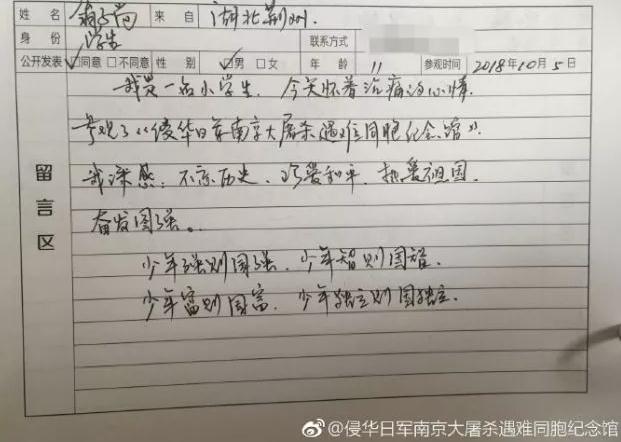 姓名 翁子尚 来自 湖北荆州.
身份 学生 联系方式
公开发表 ☑同意 □不同意 性别 ☑男 □女 年龄 11 参观时间 2018年10月5日
留言区
我是一名小学生. 今天怀着沉痛的心情.
参观了《侵华日军南京大屠杀遇难同胞纪念馆》.
我深感: 不忘历史、珍爱和平、热爱祖国.
奋发图强。
少年强则国强、少年智则国智.
少年富则国富、少年独立则国独立.
@侵华日军南京大屠杀遇难同胞纪念馆